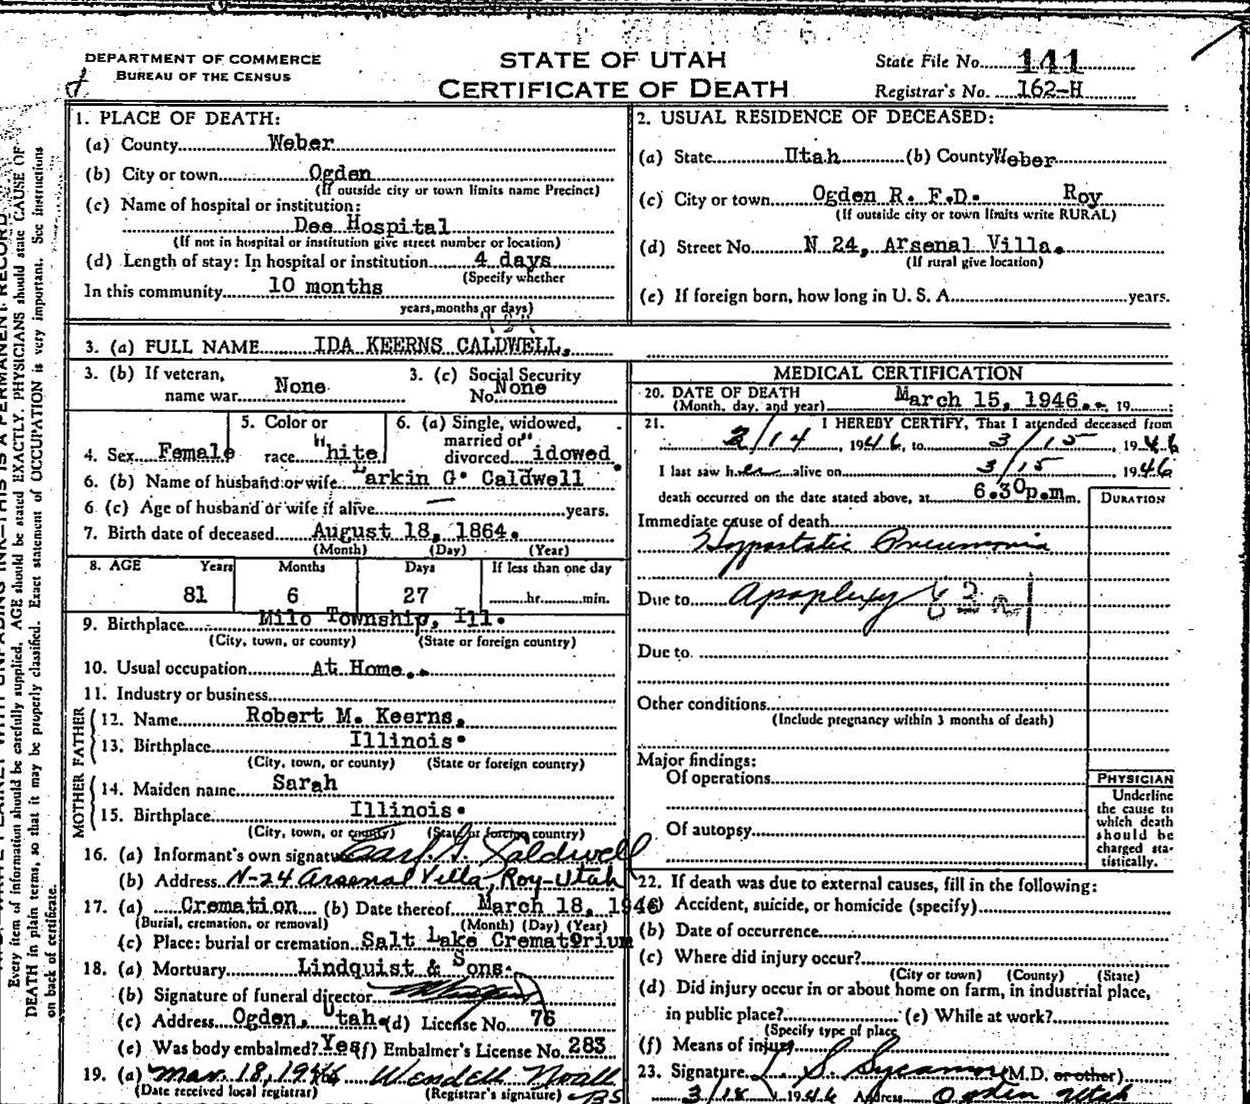 DEPARTMENT OF COMMERCE
BUREAU OF THE CENSUS
STATE OF UTAH
CERTIFICATE OF DEATH
State File No. 141
Registrar's No. 162-H
1. PLACE OF DEATH:
(a) County Weber
(b) City or town Ogden
(If outside city or town limits name Precinct)
(c) Name of hospital or institution:
Dee Hospital
(If not in hospital or institution give street number or location)
(d) Length of stay: In hospital or institution 4 days
(Specify whether
In this community 10 months
years, months or days)
2. USUAL RESIDENCE OF DECEASED:
(a) State Utah (b) County Weber
(c) City or town Ogden R. F.D. Roy
(If outside city or town limits write RURAL)
(d) Street No. N 24, Arsenal Villa.
(If rural give location)
(e) If foreign born, how long in U. S. A. years.
3. (a) FULL NAME IDA KEERNS CALDWELL.
3. (b) If veteran, name war None
3. (c) Social Security No. None
4. Sex Female
5. Color or race White
6. (a) Single, widowed, married or divorced Widowed.
6. (b) Name of husband or wife Larkin G. Caldwell
6 (c) Age of husband or wife if alive — years.
7. Birth date of deceased August 18, 1864.
(Month) (Day) (Year)
8. AGE Years Months Days If less than one day
81 6 27 hr. min.
9. Birthplace Milo Township, Ill.
(City, town, or county) (State or foreign country)
10. Usual occupation At Home.
11. Industry or business
FATHER
12. Name Robert M. Keerns.
13. Birthplace Illinois.
(City, town, or county) (State or foreign country)
MOTHER
14. Maiden name Sarah
15. Birthplace Illinois.
(City, town, or county) (State or foreign country)
16. (a) Informant's own signature Earl G. Caldwell
(b) Address N-24 Arsenal Villa, Roy-Utah
17. (a) Cremation (b) Date thereof March 18, 1946
(Burial, cremation, or removal) (Month) (Day) (Year)
(c) Place: burial or cremation Salt Lake Crematorium
18. (a) Mortuary Lindquist & Sons.
(b) Signature of funeral director
(c) Address Ogden, Utah. (d) License No. 76
(e) Was body embalmed? Yes (f) Embalmer's License No. 283
19. (a) Mar. 18, 1946 Wendell Noall
(Date received local registrar) (Registrar's signature) BS
MEDICAL CERTIFICATION
20. DATE OF DEATH March 15, 1946. 19
(Month, day, and year)
21. I HEREBY CERTIFY, That I attended deceased from
2/14, 1946, to 3/15, 1946
I last saw her alive on 3/15 1946
death occurred on the date stated above, at 6.30p.m.m.
DURATION
Immediate cause of death
Hypostatic Pneumonia
Due to Apoplexy
Due to
Other conditions
(Include pregnancy within 3 months of death)
Major findings:
Of operations
Of autopsy
PHYSICIAN
Underline
the cause to
which death
should be
charged sta-
tistically.
22. If death was due to external causes, fill in the following:
(a) Accident, suicide, or homicide (specify)
(b) Date of occurrence
(c) Where did injury occur?
(City or town) (County) (State)
(d) Did injury occur in or about home on farm, in industrial place,
in public place? (e) While at work?
(Specify type of place
(f) Means of injury
23. Signature (M.D. or other)
3/18 1946 Address Ogden Utah
Every item of information should be carefully supplied. AGE should be stated EXACTLY. PHYSICIANS should state CAUSE OF
DEATH in plain terms, so that it may be properly classified. Exact statement of OCCUPATION is very important. See instructions
on back of certificate.